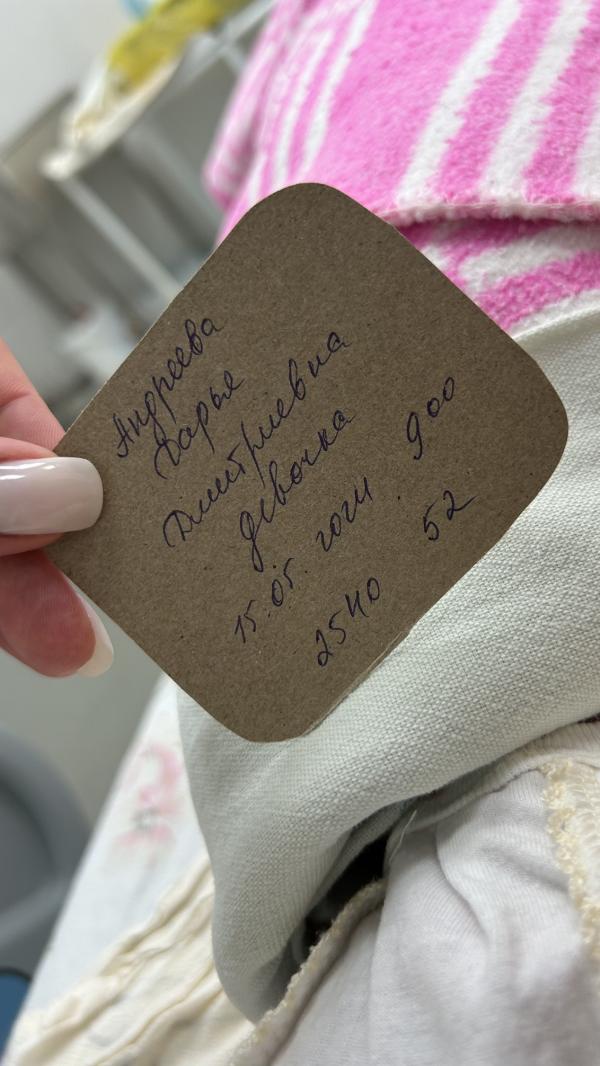 Андреева
Дарья
Дмитриевна
девочка
15.05.2024 900
2540 52